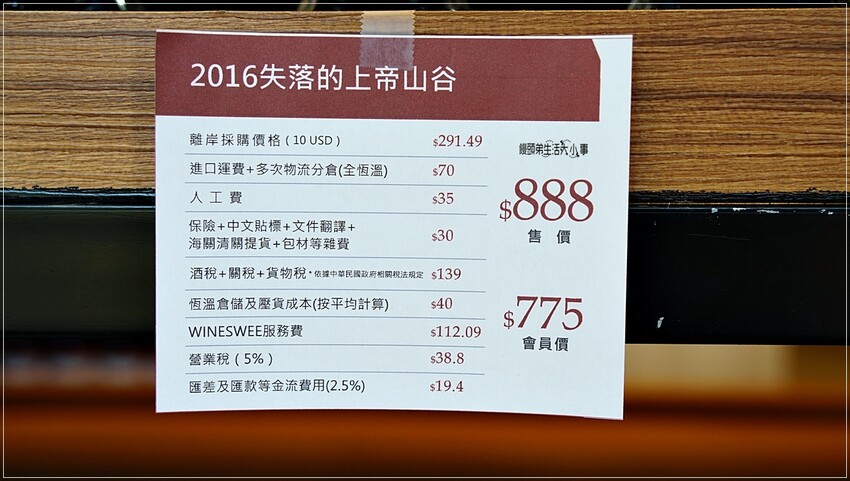 2016失落的上帝山谷
離岸採購價格(10 USD)
$291.49
進口運費+多次物流分倉(全恆溫)
$70
人工費
$35
保險+中文貼標+文件翻譯+
海關清關提貨+包材等雜費
$30
酒稅+關稅+貨物稅*依據中華民國政府相關稅法規定
$139
恆溫倉儲及壓貨成本(按平均計算)
$40
WINESWEE服務費
$112.09
營業稅(5%)
$38.8
匯差及匯款等金流費用(2.5%)
$19.4
饅頭弟生活大小事
$888
售價
$775
會員價